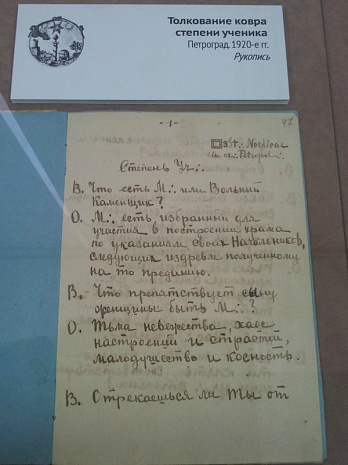 Толкование ковра
степени ученика
Петроград, 1920-е гг.
Рукопись
- 1 -
47
St∴
in or∴ Petropol∴
Степень Уч∴
В. Что есть М∴ или Вольный
Каменщик?
О. М∴ есть, избранный для
участия в построении храма
по указаниям своих Начальников,
следующих издревле полученному
на то преданию.
В. Что препятствует сыну
женщины быть М∴?
О. Тьма невежества, хаос
настроений и страстей,
малодушество и косность.
В. Отрекаешься ли ты от